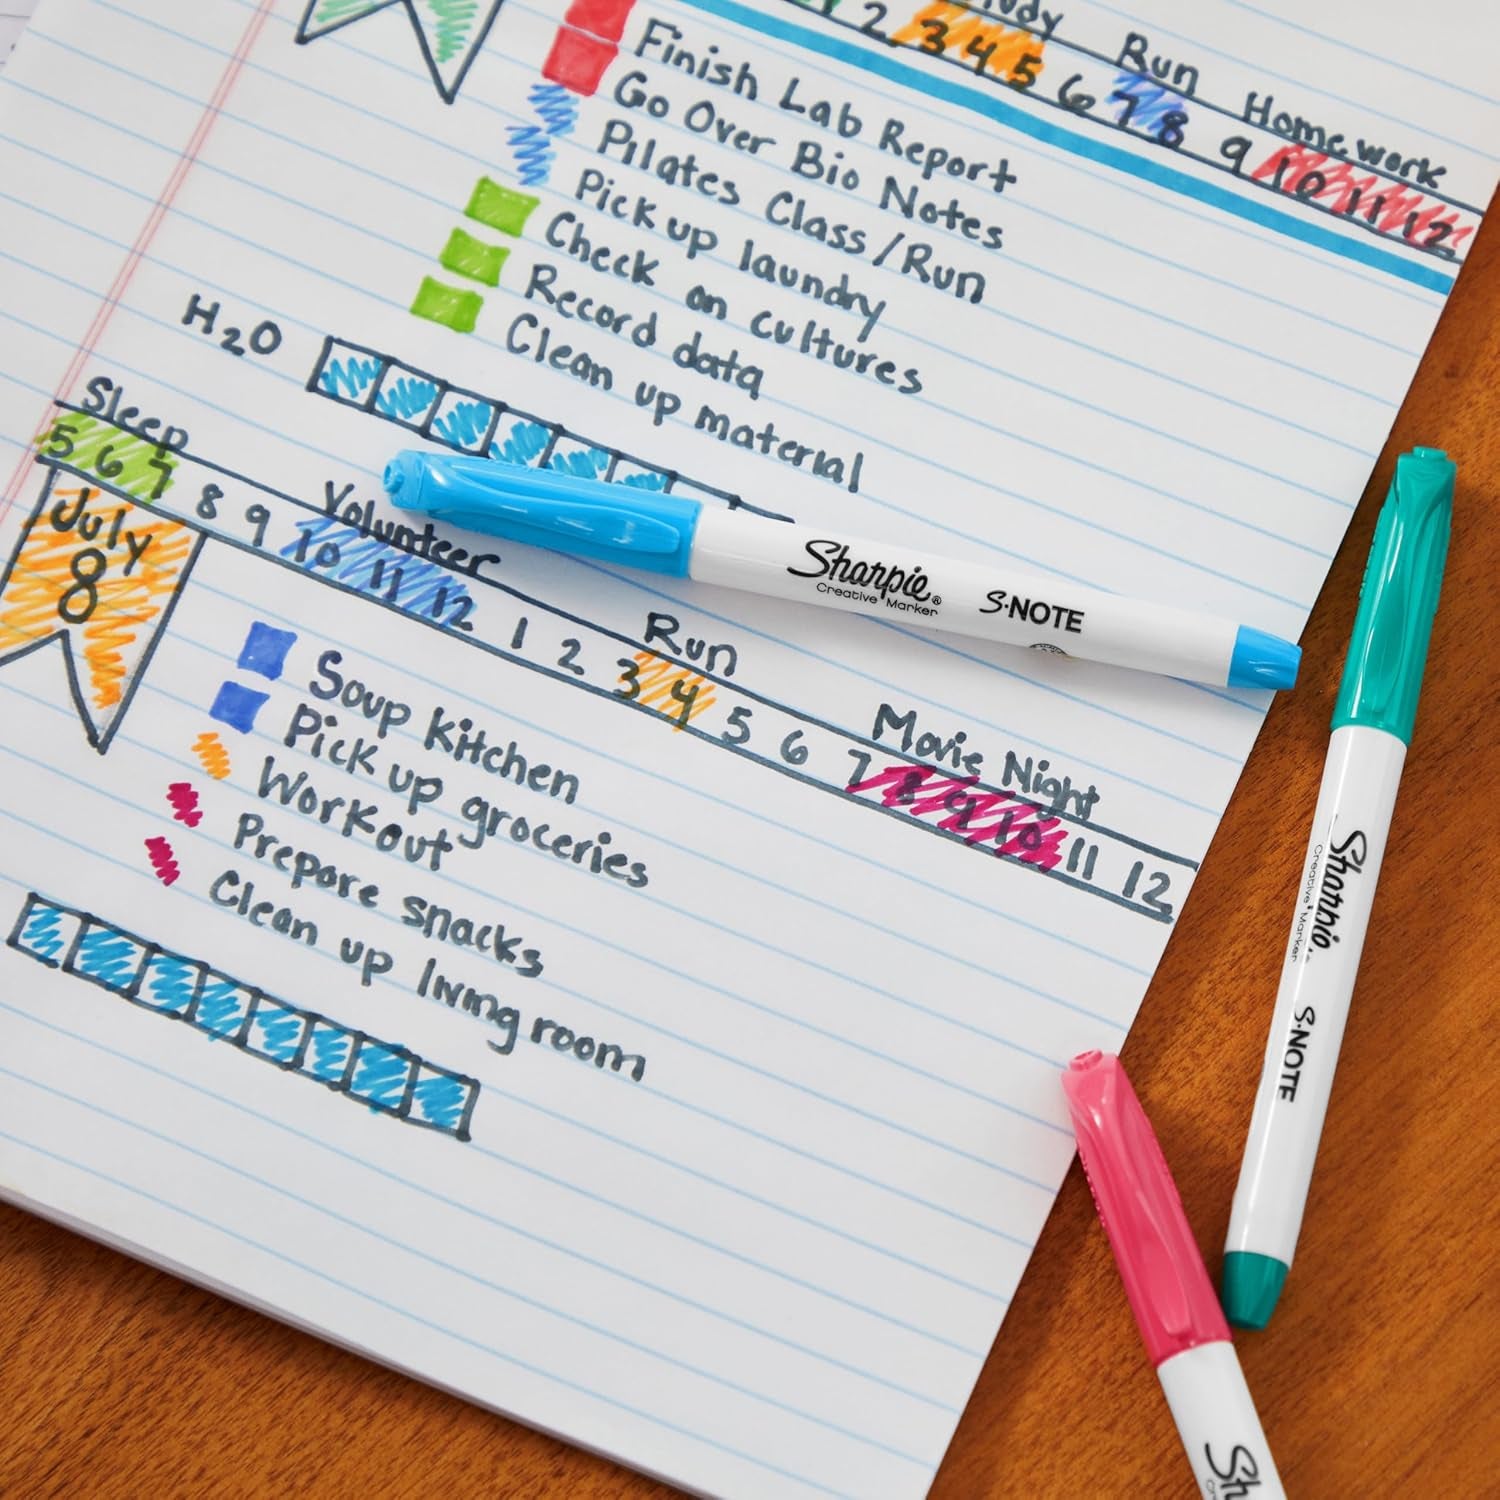 2 3 4 5 6 7 8 9 10 11 12
Run
Homework
Finish Lab Report
Go Over Bio Notes
Pilates Class/Run
Pick up laundry
Check on cultures
Record data
Clean up material
H₂O
Sleep
Volunteer
Run
Movie Night
5 6 7 8 9 10 11 12 1 2 3 4 5 6 7 8 9 10 11 12
July
8
Soup Kitchen
Pick up groceries
Workout
Prepare snacks
Clean up living room
Sharpie®
Creative Marker
S·NOTE
Sharpie
Creative Marker
S·NOTE